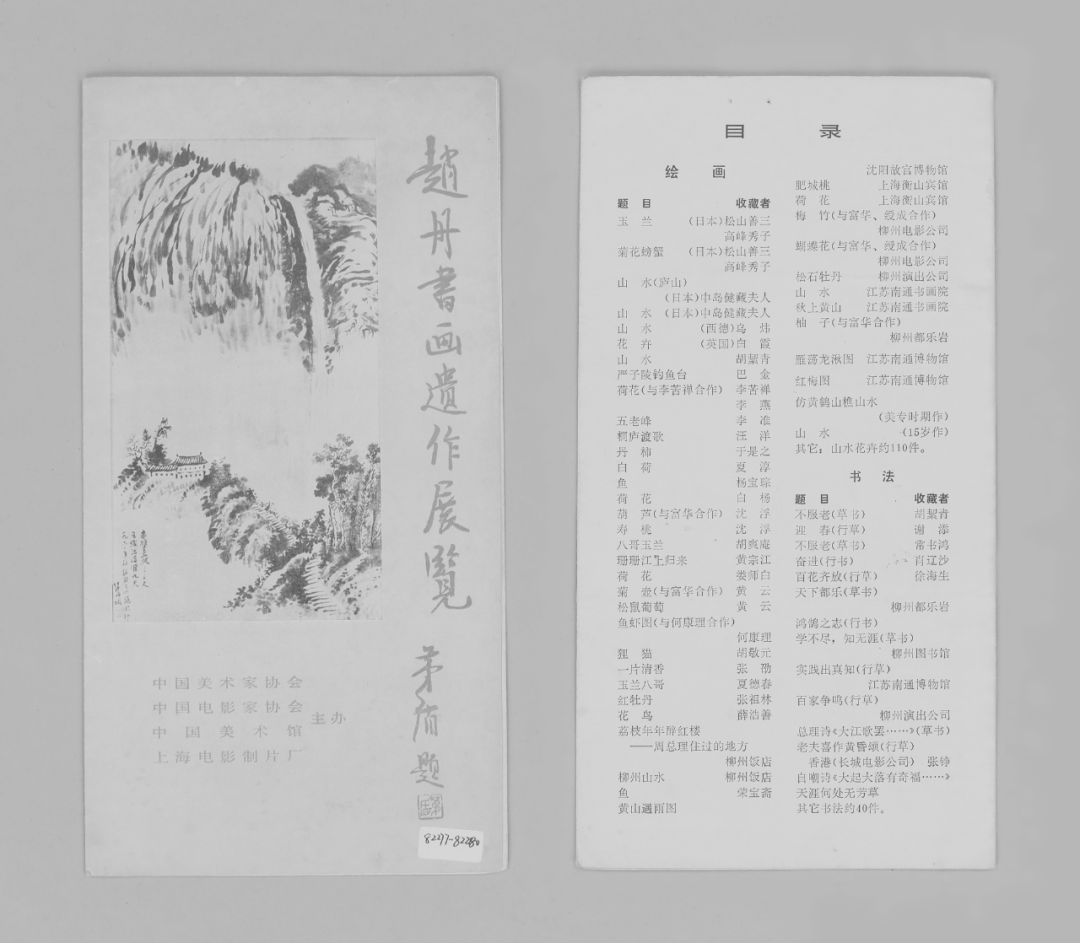 趙丹書画遺作展覽
茅盾题
中国美术家协会
中国电影家协会
中国美术馆
上海电影制片厂
主办
82277-82280
目 录
绘 画
题 目 收藏者
玉 兰 (日本)松山善三
高峰秀子
菊花螃蟹 (日本)松山善三
高峰秀子
山 水(庐山)
(日本)中岛健藏夫人
山 水 (日本)中岛健藏夫人
山 水 (西德)乌 炜
花 卉 (英国)白 霞
山 水 胡絜青
严子陵钓鱼台 巴 金
荷花(与李苦禅合作) 李苦禅
李 燕
五老峰 李 准
桐庐渔歌 汪 洋
丹 柿 于是之
白 荷 夏 淳
鱼 杨宝琮
荷 花 白 杨
葫 芦(与富华合作) 沈 浮
寿 桃 沈 浮
八哥玉兰 胡爽庵
珊珊江上归来 黄宗江
荷 花 娄师白
菊 壶(与富华合作) 黄 云
松鼠葡萄 黄 云
鱼虾图(与何康理合作)
何康理
狸 猫 胡敬元
一片清香 张 勋
玉兰八哥 夏德春
红牡丹 张祖林
花 鸟 薛浩善
荔枝年年醉红楼
——周总理住过的地方
柳州饭店
柳州山水 柳州饭店
鱼 荣宝斋
黄山遇雨图
沈阳故宫博物馆
肥城桃 上海衡山宾馆
荷 花 上海衡山宾馆
梅 竹(与富华、绶成合作)
柳州电影公司
蝴蝶花(与富华、绶成合作)
柳州电影公司
松石牡丹 柳州演出公司
山 水 江苏南通书画院
秋上黄山 江苏南通书画院
柚 子(与富华合作)
柳州都乐岩
雁荡龙湫图 江苏南通博物馆
红梅图 江苏南通博物馆
仿黄鹤山樵山水
(美专时期作)
山 水 (15岁作)
其它：山水花卉约110件。
书 法
题 目 收藏者
不服老(草书) 胡絜青
迎 春(行草) 谢 添
不服老(草书) 常书鸿
奋进(行书) 肖辽沙
百花齐放(行草) 徐海生
天下都乐(草书)
柳州都乐岩
鸿鹄之志(行书)
学不尽，知无涯(草书)
柳州图书馆
实践出真知(行草)
江苏南通博物馆
百家争鸣(行草)
柳州演出公司
总理诗《大江歌罢……》(草书)
老夫喜作黄昏颂(行草)
香港(长城电影公司) 张铮
自嘲诗《大起大落有奇福……》
天涯何处无芳草
其它书法约40件。